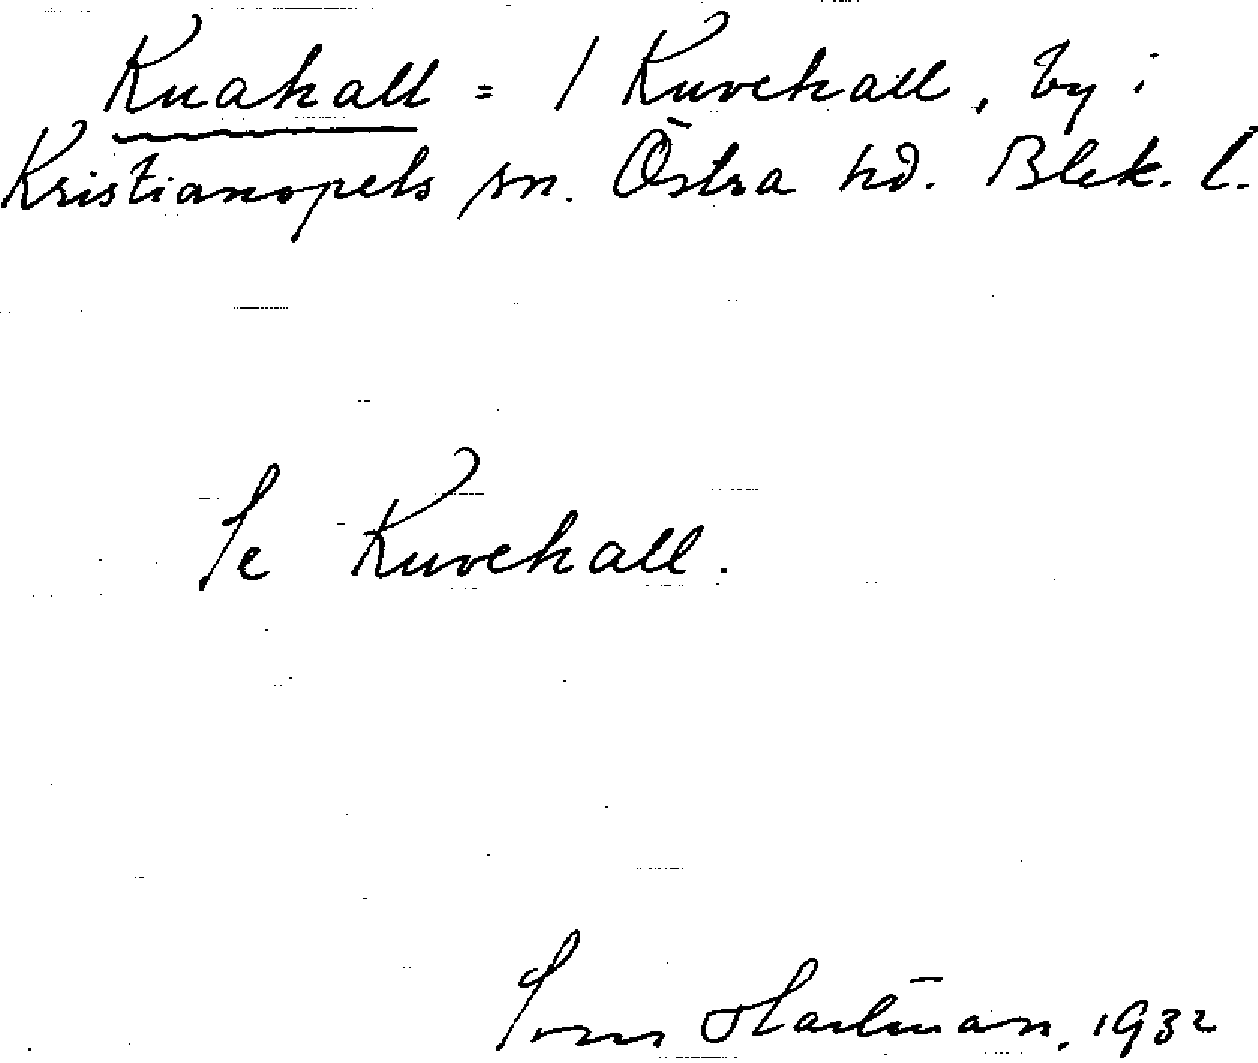 Kuahall = / Kuvehall, by i
Kristianopels sn. Östra hd. Blek. l.
Se Kuvehall.
Sven Hartman, 1932